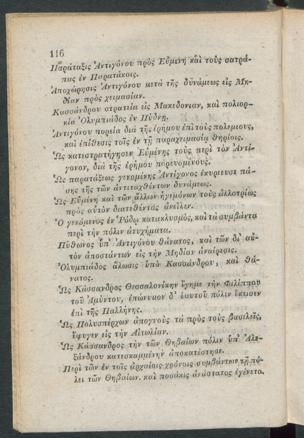 116
Παράταξις Ἀντιγόνου πρὸς Εὐμενῆ καὶ τοὺς σατρά-
πας ἐν Παρατάκοις.
Ἀποχώρησις Ἀντιγόνου μετὰ τῆς δυνάμεως εἰς Μη-
δίαν πρὸς χειμασίαν.
Κασσάνδρου στρατεία εἰς Μακεδονίαν, καὶ πολιορ-
κία Ὀλυμπιάδος ἐν Πύδνῃ.
Ἀντιγόνου πορεία διὰ τῆς ἐρήμου ἐπὶ τοὺς πολεμίους,
καὶ ἐπίθεσις τοῖς ἐν τῇ παραχειμασίᾳ θηρίοις.
Ὡς κατεστρατήγησεν Εὐμένης τοὺς περὶ τὸν Ἀντί-
γονον, διὰ τῆς ἐρήμου πορευομένους.
Ὡς παρατάξεως γενομένης Ἀντίγονος ἐκυρίευσε πά-
σης τῆς τῶν ἀντιταχθέντων δυνάμεως.
Ὡς Εὐμένη καὶ τῶν ἄλλων ἡγεμόνων τοὺς ἀλλοτρίως
πρὸς αὐτὸν διατιθέντας ἀνεῖλεν.
Ὁ γενόμενος ἐν Ῥόδῳ κατακλυσμὸς, καὶ τὰ συμβάντα
περὶ τὴν πόλιν ἀτυχήματα.
Πύθωνος ὑπ' Ἀντιγόνου θάνατος, καὶ τῶν δι' αὐ-
τὸν ἀποστάντων εἰς τὴν Μηδίαν ἀναίρεσις.
Ὀλυμπιάδος ἅλωσις ὑπὸ Κασσάνδρου, καὶ θά-
νατος.
Ὡς Κάσσανδρος Θεσσαλονίκην ἔγημε τὴν Φιλίππου
τοῦ Ἀμύντου, ἐπώνυμον δ' ἑαυτοῦ πόλιν ἔκτισεν
ἐπὶ τῆς Παλλήνης.
Ὡς Πολυσπέρχων ἀπογνοὺς τὰ πρὸς τοὺς βασιλεῖς,
ἔφυγεν εἰς τὴν Αἰτωλίαν.
Ὡς Κάσσανδρος τὴν τῶν Θηβαίων πόλιν ὑπ' Ἀλε-
ξάνδρου κατεσκαμμένην ἀποκατέστησε.
Περὶ τῶν ἐν τοῖς ἀρχαίοις χρόνοις συμβάντων τῇ πό-
λει τῶν Θηβαίων, καὶ ποσάκις ἀνάστατος ἐγένετο.